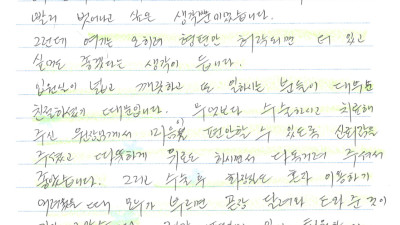 빨리 벗어나고 싶은 생각뿐이었습니다.
그런데 여기는 오히려 형편만 허락되면 더 있고
싶어도 좋겠다는 생각이 듭니다.
입원실이 넓고 깨끗하고 또 일하시는 분들이 너무
친절하셨기 때문입니다. 무엇보다 수술하시고 치료해
주신 원장님께서 마음이 편안할 수 있도록 신뢰감을
주셨고 따뜻하게 위로도 하시면서 다독거려 주셔서
좋았습니다. 그리고 수술후 화장실도 혼자 이용하기
어려웠을 때 모두가 부르면 곧장 달려와 도와준 것이